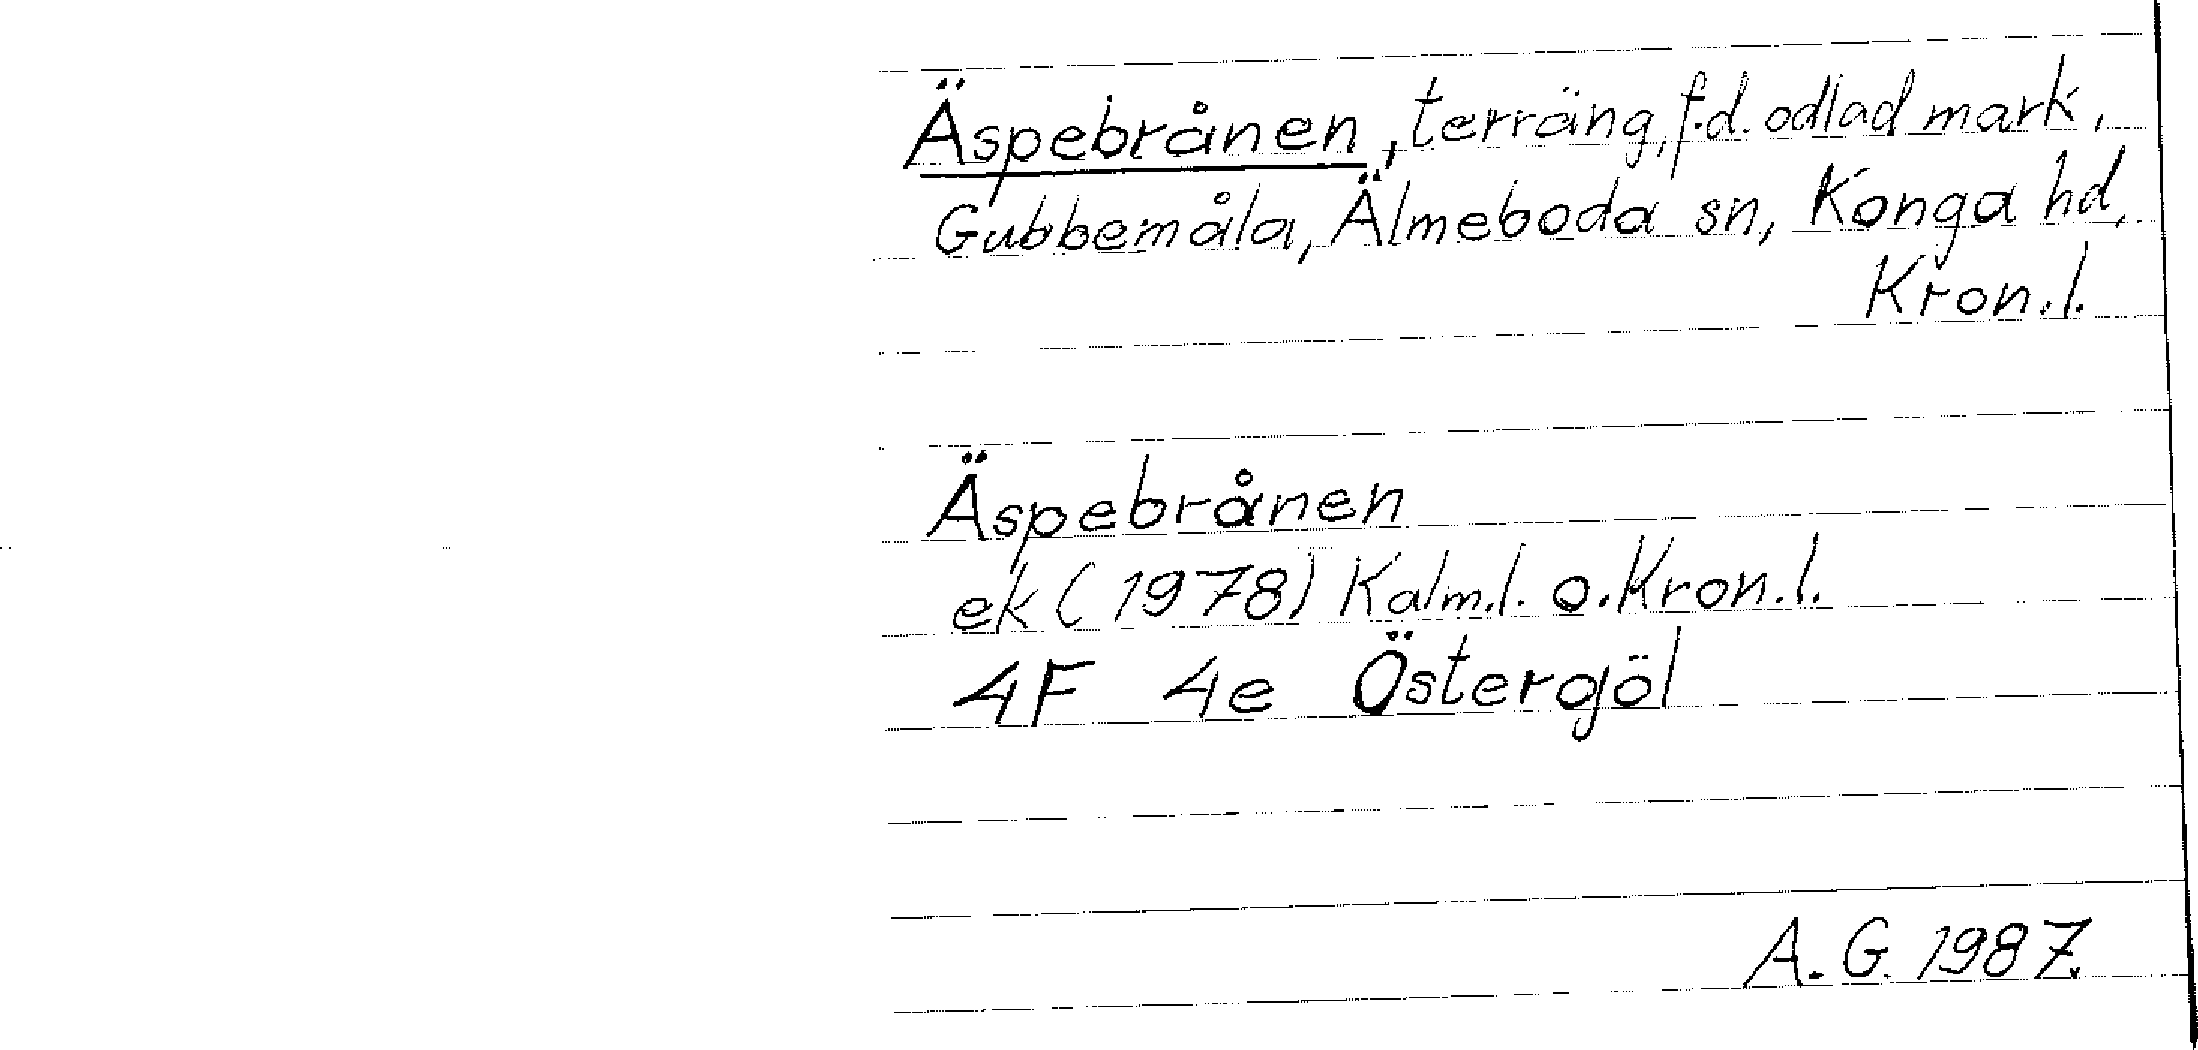 Äspebrånen, terräng, f.d. odlad mark,
Gubbemåla, Älmeboda sn, Konga hd,
Kron.l.
Äspebrånen
ek (1978) Kalm.l. o. Kron.l.
4F 4e Östergöl
A.G. 1987.